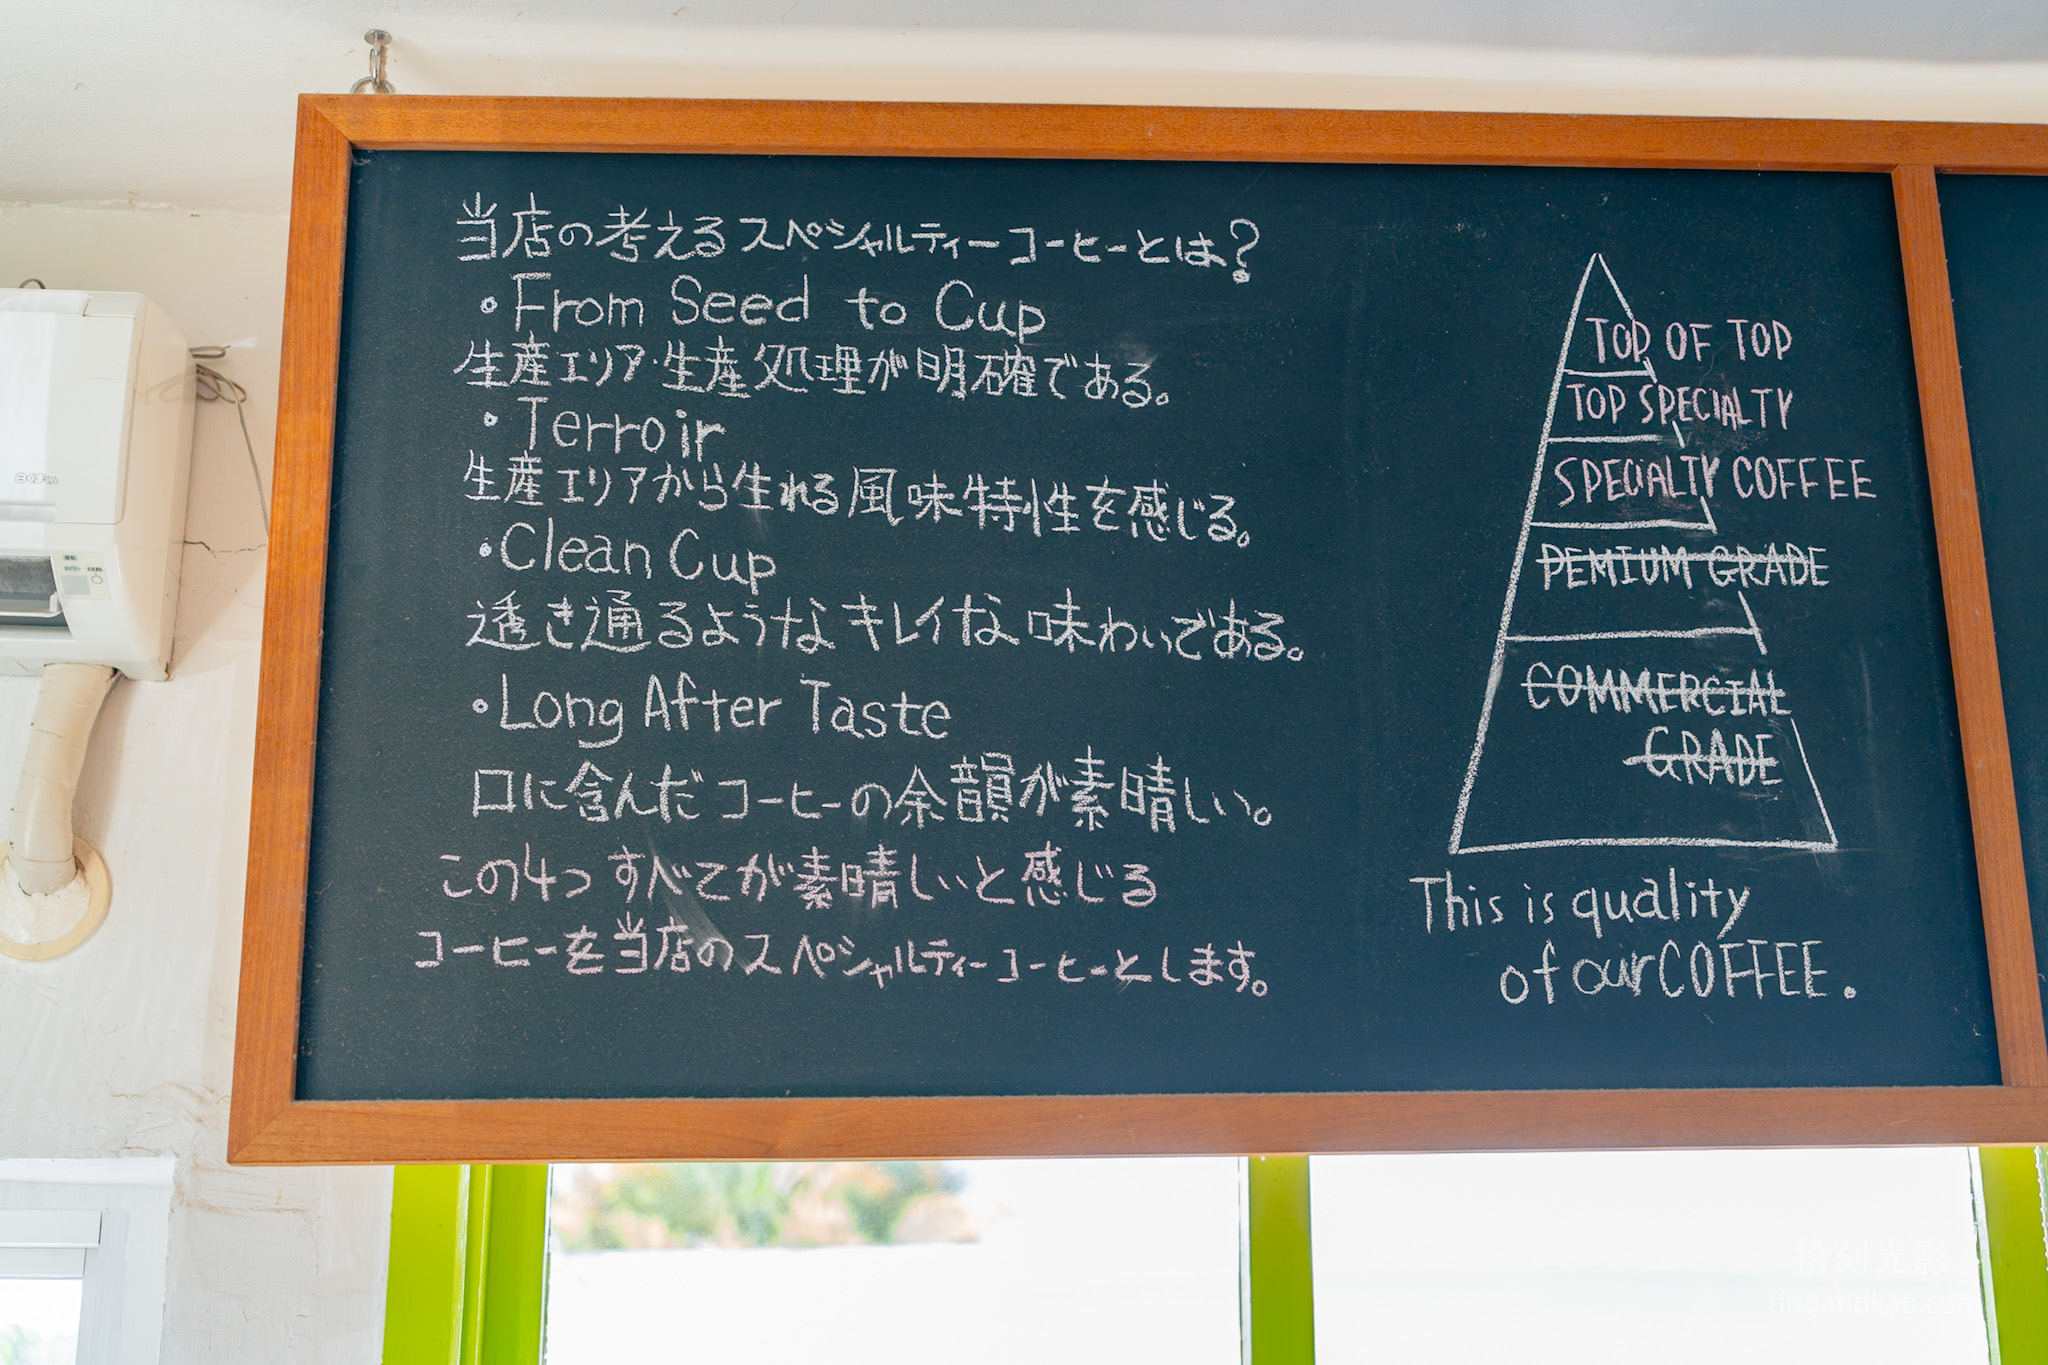 当店の考えるスペシャルティーコーヒーとは?
・From Seed to Cup
生産エリア・生産処理が明確である。
・Terroir
生産エリアから生れる風味特性を感じる。
・Clean Cup
透き通るようなキレイな味わいである。
・Long After Taste
口に含んだコーヒーの余韻が素晴しい。
この4つすべてが素晴しいと感じる
コーヒーを当店のスペシャルティーコーヒーとします。
TOP OF TOP
TOP SPECIALTY
SPECIALTY COFFEE
PEMIUM GRADE
COMMERCIAL
GRADE
This is quality
of our COFFEE.
白くまくん
拾刻光影
tingandkao.com